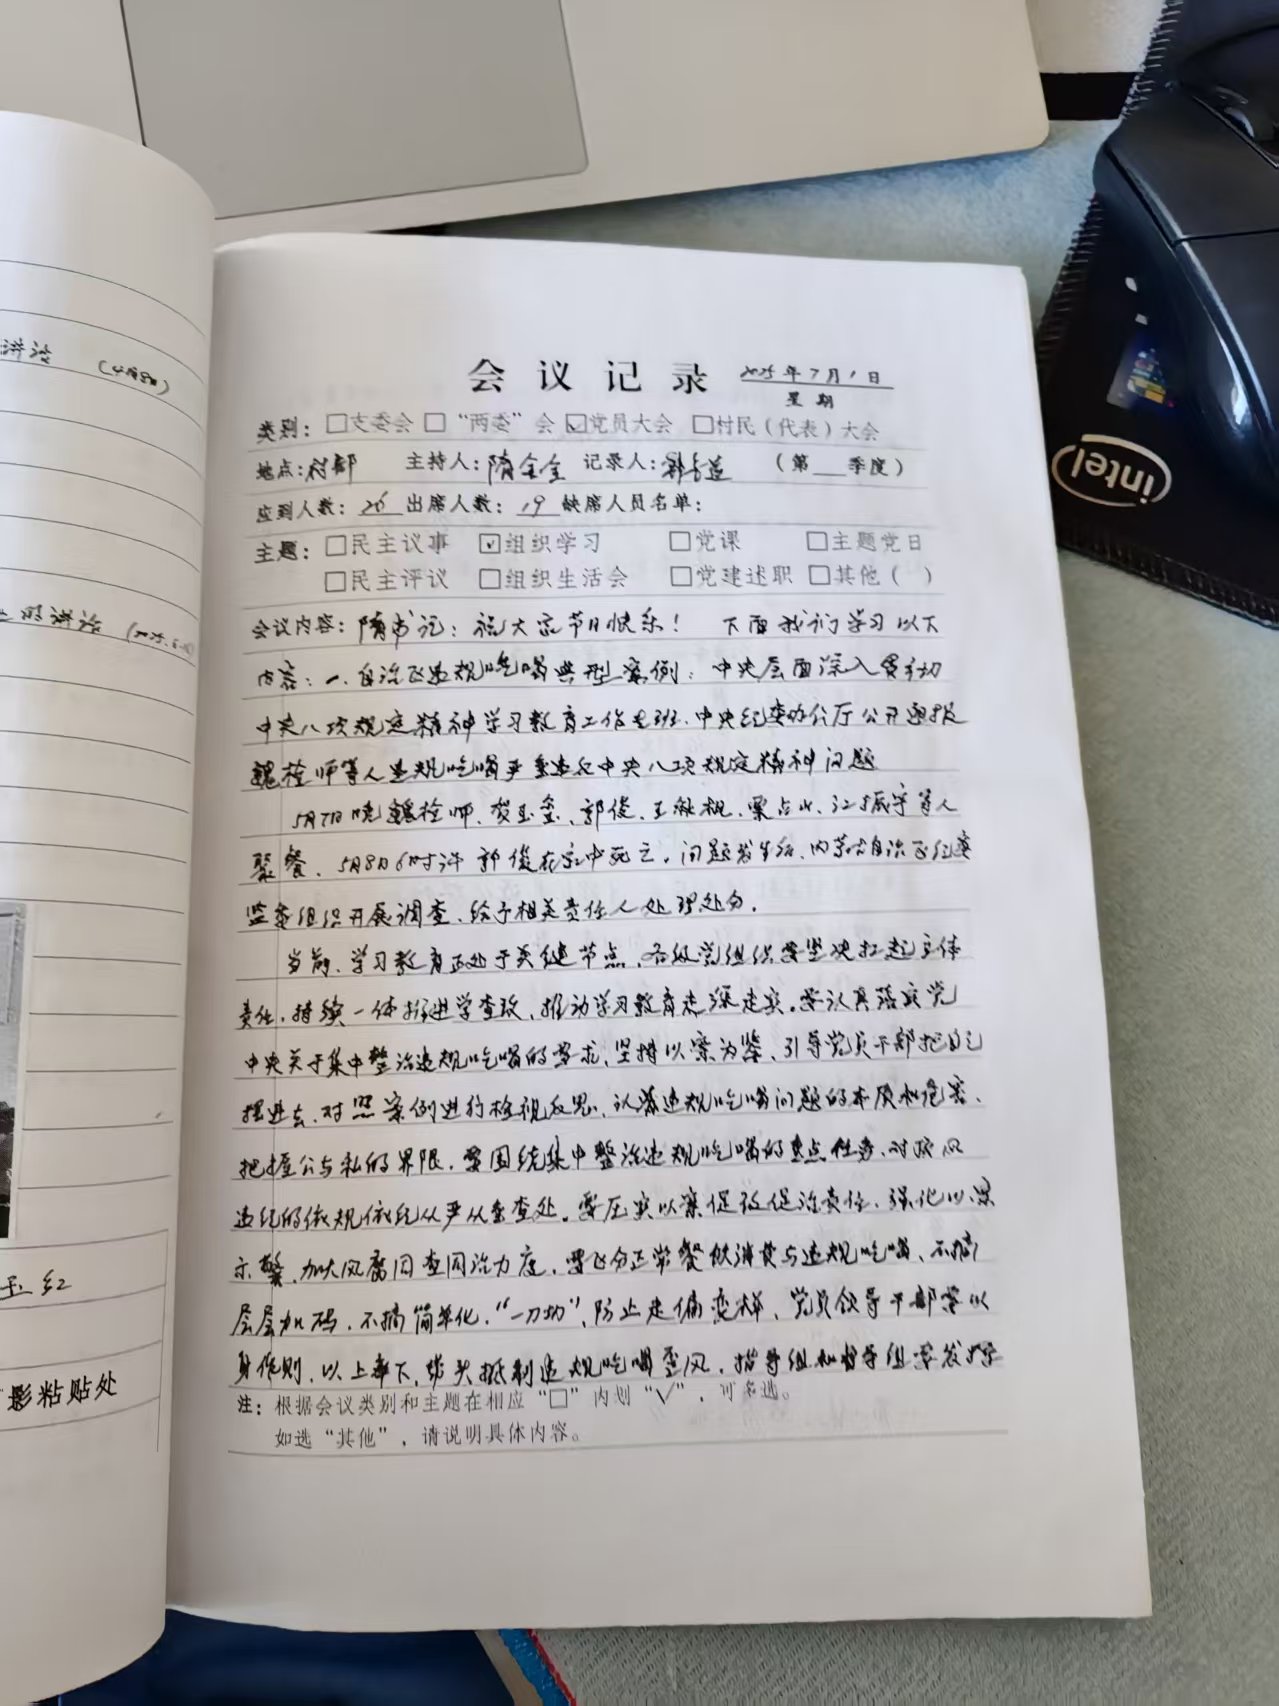 讲话 (4月8日)
的讲话
玉红
影粘贴处
会议记录 2025年7月1日
星期
类别：□支委会 □“两委”会 ☑党员大会 □村民（代表）大会
地点：村部 主持人：隋全全 记录人： （第 季度）
应到人数：26 出席人数：19 缺席人员名单：
主题：□民主议事 ☑组织学习 □党课 □主题党日
□民主评议 □组织生活会 □党建述职 □其他（ ）
会议内容：隋书记：祝大家节日快乐！ 下面我们学习以下
内容：一、自治区违规吃喝典型案例：中央层面深入贯彻
中央八项规定精神学习教育工作专班、中央纪委办公厅公开通报
魏栓师等人违规吃喝严重违反中央八项规定精神问题
5月7日晚魏栓师、贺玉玺、郭俊、王献枫、栗占山、江振宇等人
聚餐、5月8日6时许郭俊在家中死亡。问题发生后、内蒙古自治区纪委
监委组织开展调查、给予相关责任人处理处分。
当前、学习教育正处于关键节点、各级党组织要坚决扛起主体
责任、持续一体推进学查改、推动学习教育走深走实。要认真落实党
中央关于集中整治违规吃喝的要求、坚持以案为鉴、引导党员干部把自己
摆进去、对照案例进行检视反思、认清违规吃喝问题的本质和危害、
把握公与私的界限。要围绕集中整治违规吃喝的重点任务、对顶风
违纪的依规依纪从严从重查处。要压实以案促改促治责任、强化以案
示警、加大风腐同查同治力度、要区分正常餐饮消费与违规吃喝、不搞
层层加码、不搞简单化、“一刀切”、防止走偏变样、党员领导干部要以
身作则、以上率下、带头抵制违规吃喝歪风、指导组和督导组要发挥
注：根据会议类别和主题在相应“□”内划“√”，可多选。
如选“其他”，请说明具体内容。
intel